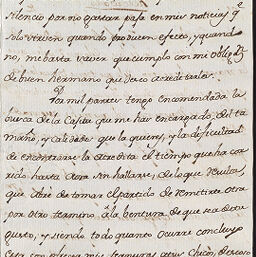 silencio por no gastar pasa en mis noticias, q.e
solo sirven quando producen efecto, y quando
no, me basta hacer que cumplo con mi oblig.n
de buen hermano que deseo acreditarles.
Por mil partes tengo encomendada la
buena de la Casita que me han encargado, del ta
maño, y calidades que la quieres, y la dificultad
de encontrarse la acredita el tiempo que ha co
rrido hasta ahora sin hallarse, de lo que resulta,
que abré de tomar el partido de remitirte otra
por otro termino â la bentura de que sea de tu
gusto, y siendo todo quanto ocurre concluyo